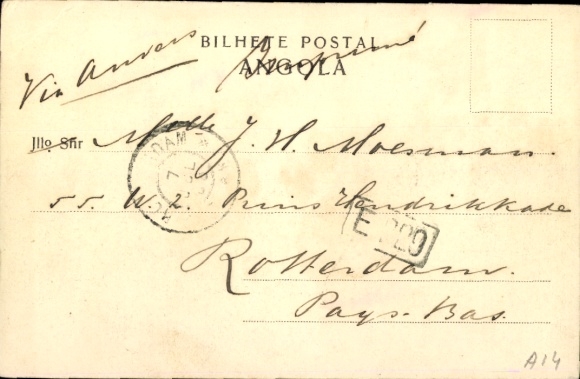 BILHETE POSTAL
ANGOLA
Via Anvers
Imprimé
Illo Snr Melle J. H. Moesman.
55 W. Z. Prins Hendrikkade
Rotterdam.
Pays-Bas.
DAM
A14